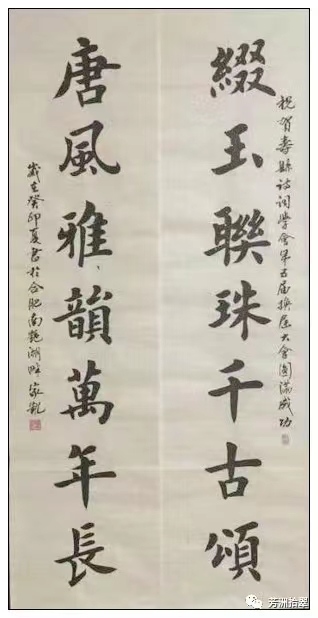 祝賀壽縣诗词學會第五届换届大會圓滿成功
綴玉聯珠千古頌
唐風雅韻萬年長
歲在癸卯夏書於合肥南艷湖畔家
芳洲拾翠